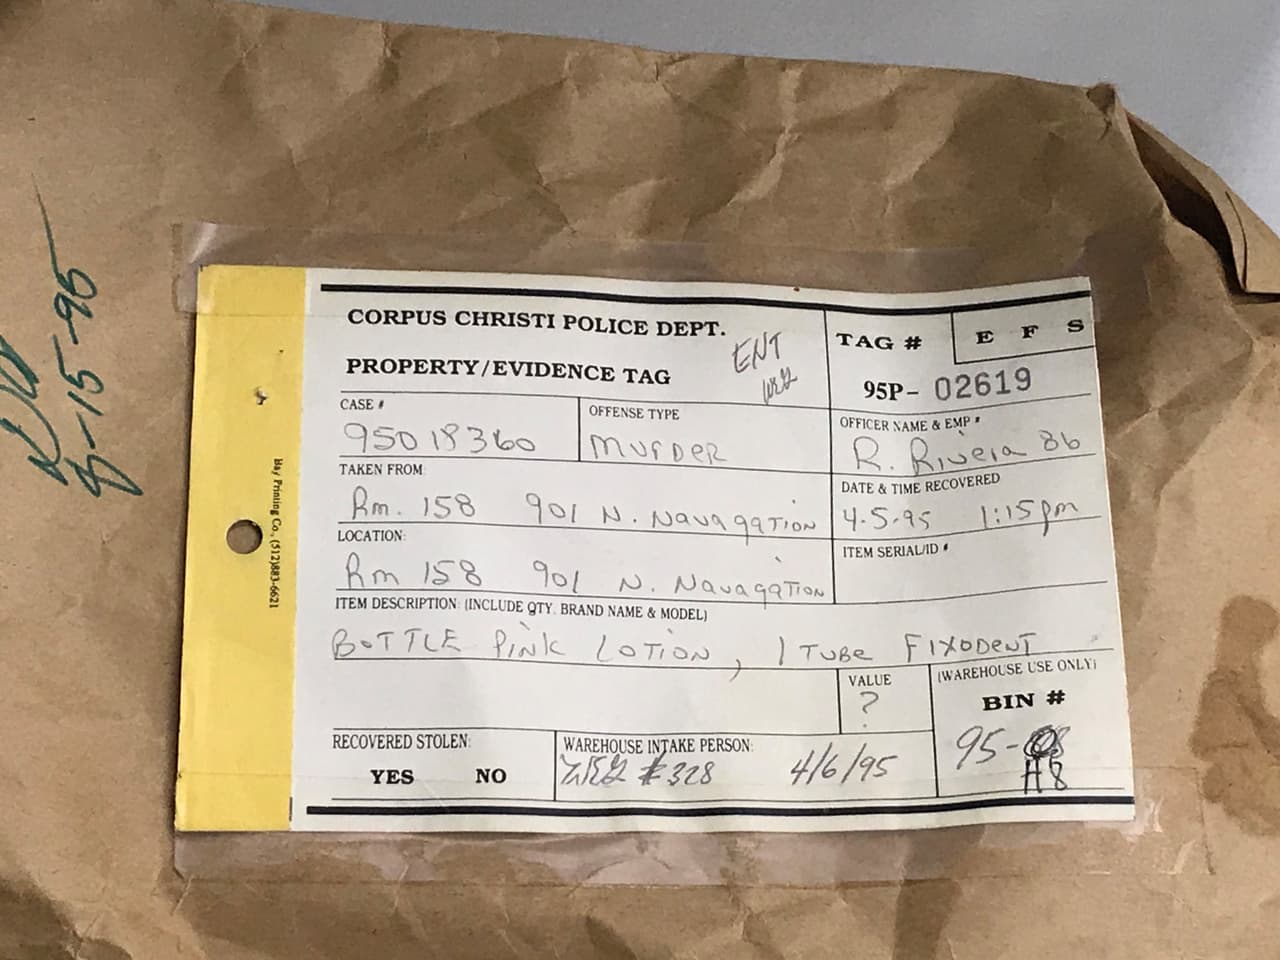 8-15-95
CORPUS CHRISTI POLICE DEPT.
PROPERTY/EVIDENCE TAG
ENT
TAG #
E F S
95P- 02619
CASE #
95018360
OFFENSE TYPE
MURDER
OFFICER NAME & EMP #
R. Rivera 86
TAKEN FROM:
Rm. 158 901 N. Navagation
DATE & TIME RECOVERED
4-5-95 1:15pm
LOCATION:
Rm 158 901 N. Navagation
ITEM SERIAL/ID #
ITEM DESCRIPTION: (INCLUDE QTY. BRAND NAME & MODEL)
BOTTLE Pink LOTION, 1 TUBE FIXODENT
VALUE
?
(WAREHOUSE USE ONLY)
BIN #
95-
H8
RECOVERED STOLEN:
YES NO
WAREHOUSE INTAKE PERSON:
#328 4/6/95
Bay Printing Co., (512)883-6621